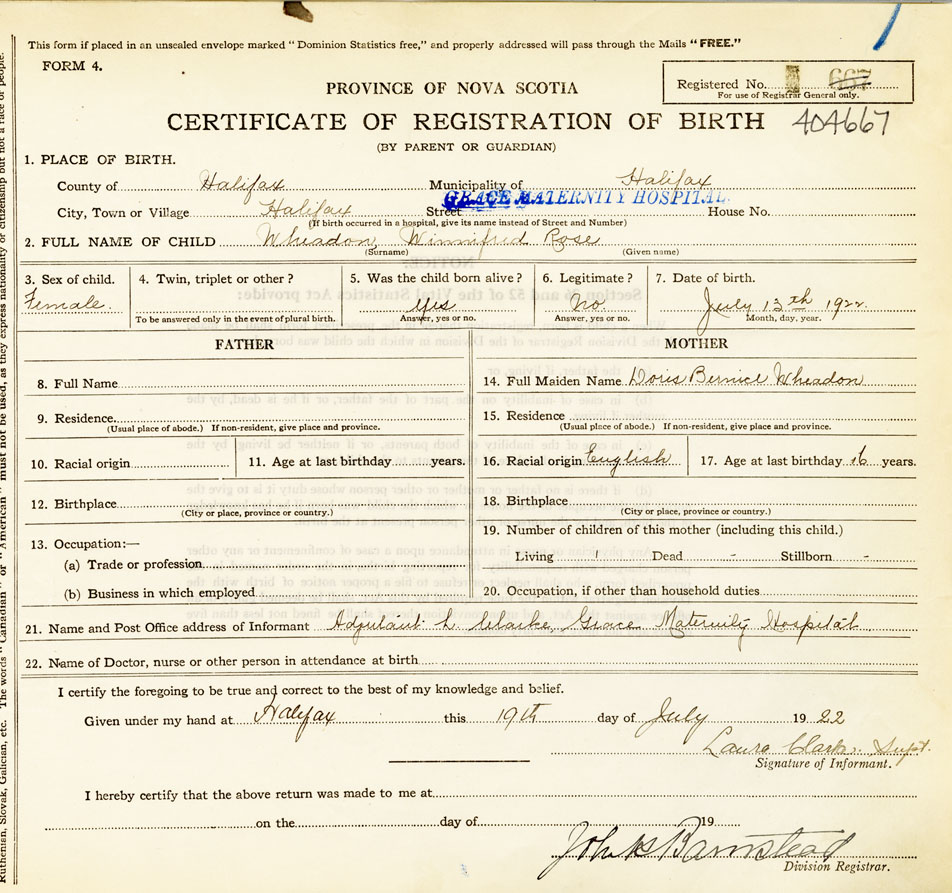 This form if placed in an unsealed envelope marked "Dominion Statistics free," and properly addressed will pass through the Mails "FREE."
FORM 4.
Registered No. 667
For use of Registrar General only.
PROVINCE OF NOVA SCOTIA
CERTIFICATE OF REGISTRATION OF BIRTH 404667
(BY PARENT OR GUARDIAN)
1. PLACE OF BIRTH.
County of Halifax Municipality of Halifax
GRACE MATERNITY HOSPITAL
City, Town or Village Halifax Street House No.
(If birth occurred in a hospital, give its name instead of Street and Number)
2. FULL NAME OF CHILD Wheadon, Winnifred Rose
(Surname) (Given name)
3. Sex of child. 4. Twin, triplet or other? 5. Was the child born alive? 6. Legitimate? 7. Date of birth.
Female. yes no. July 13th 1922.
To be answered only in the event of plural birth. Answer, yes or no. Answer, yes or no. Month, day, year.
FATHER MOTHER
8. Full Name 14. Full Maiden Name Doris Bernice Wheadon
9. Residence 15. Residence
(Usual place of abode.) If non-resident, give place and province. (Usual place of abode.) If non-resident, give place and province.
10. Racial origin 11. Age at last birthday years. 16. Racial origin English 17. Age at last birthday 16 years.
12. Birthplace 18. Birthplace
(City or place, province or country.) (City or place, province or country.)
13. Occupation:— 19. Number of children of this mother (including this child.)
(a) Trade or profession Living 1 Dead - Stillborn -
(b) Business in which employed 20. Occupation, if other than household duties
21. Name and Post Office address of Informant Adjutant L Clarke, Grace Maternity Hospital
22. Name of Doctor, nurse or other person in attendance at birth
I certify the foregoing to be true and correct to the best of my knowledge and belief.
Given under my hand at Halifax this 19th day of July 1922
Laura Clarke. Supt.
Signature of Informant.
I hereby certify that the above return was made to me at
on the day of 19
John H Barnstead
Division Registrar.
Ruthenian, Slovak, Galician, etc. The words "Canadian" or "American" must not be used, as they express nationality or citizenship but not a race or people.